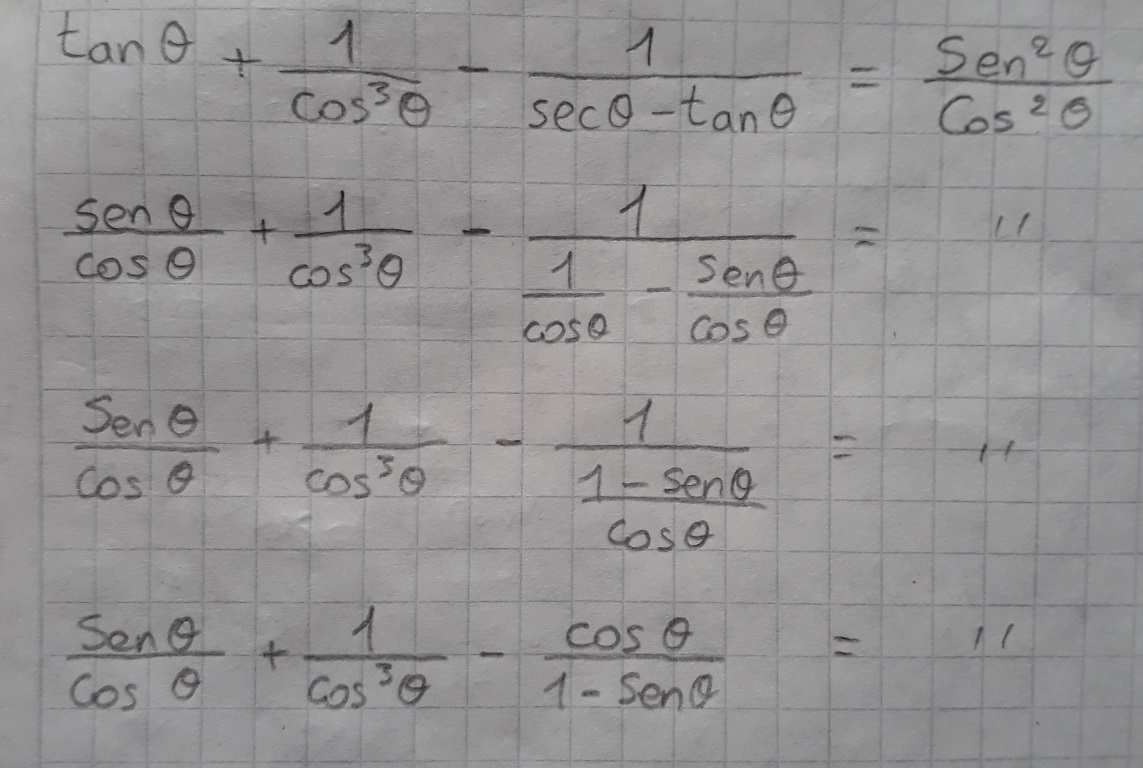 tan θ + 1/cos³θ - 1/(secθ - tanθ) = Sen²θ/Cos²θ
sen θ/cos θ + 1/cos³θ - 1/(1/cosθ - senθ/cosθ) = "
Sen θ/cos θ + 1/cos³θ - 1/((1 - senθ)/cosθ) = "
Sen θ/cos θ + 1/cos³θ - cos θ/(1 - senθ) = "